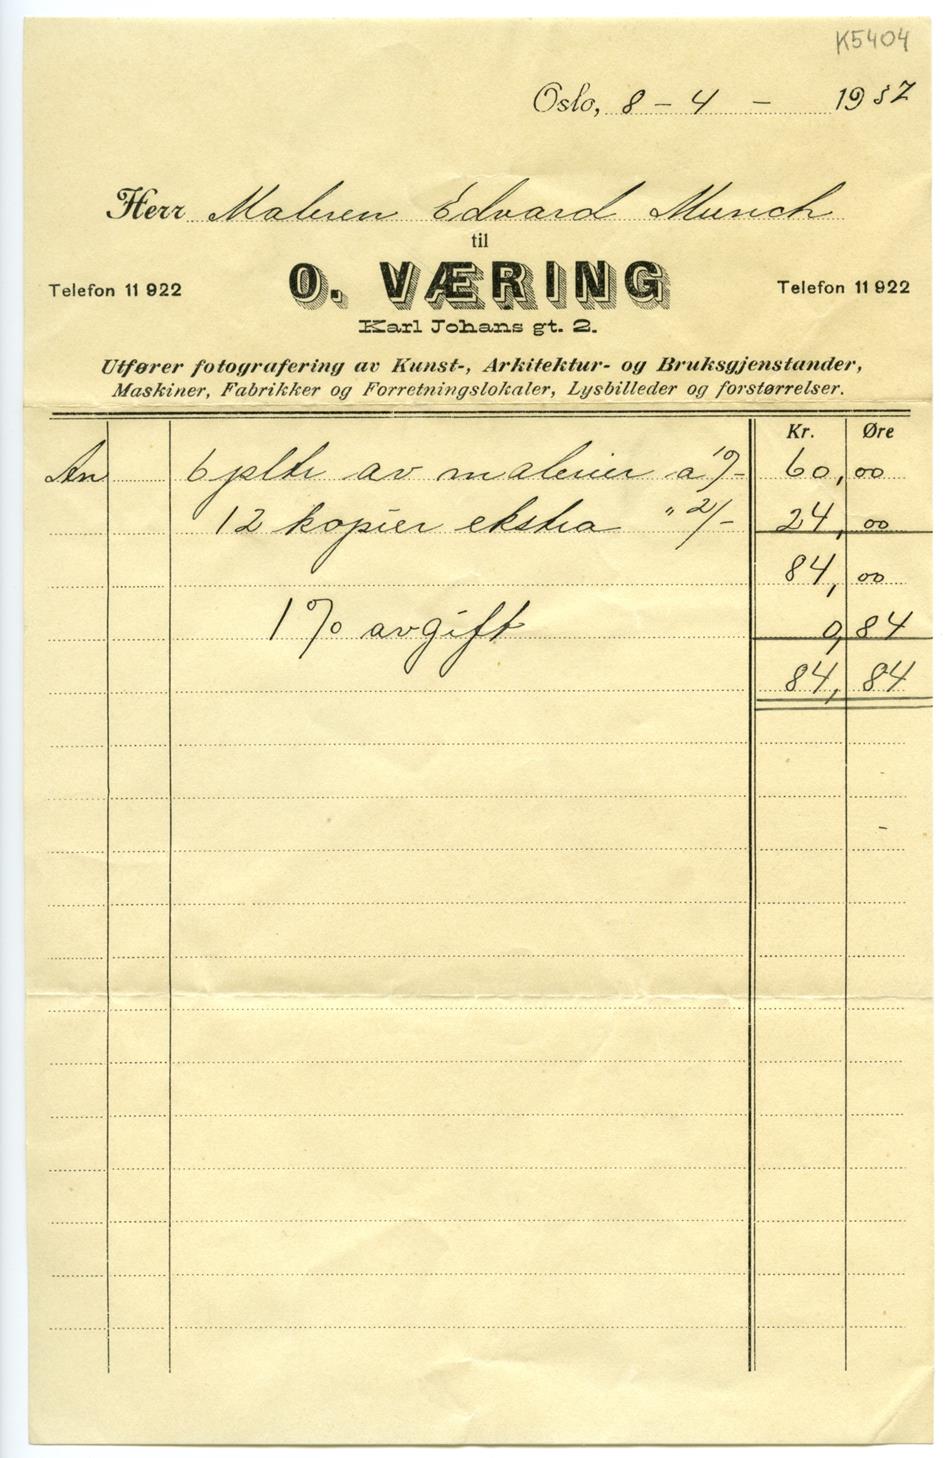 K5404
Oslo, 8 - 4 - 1937
Herr Maleren Edvard Munch
til
O. VÆRING
Telefon 11 922 Telefon 11 922
Karl Johans gt. 2.
Utfører fotografering av Kunst-, Arkitektur- og Bruksgjenstander,
Maskiner, Fabrikker og Forretningslokaler, Lysbilleder og forstørrelser.
Kr. Øre
An 6 pltr av malerier a 10/- 60, 00
12 kopier ekstra " 2/- 24, 00
84, 00
1 % avgift 0, 84
84, 84